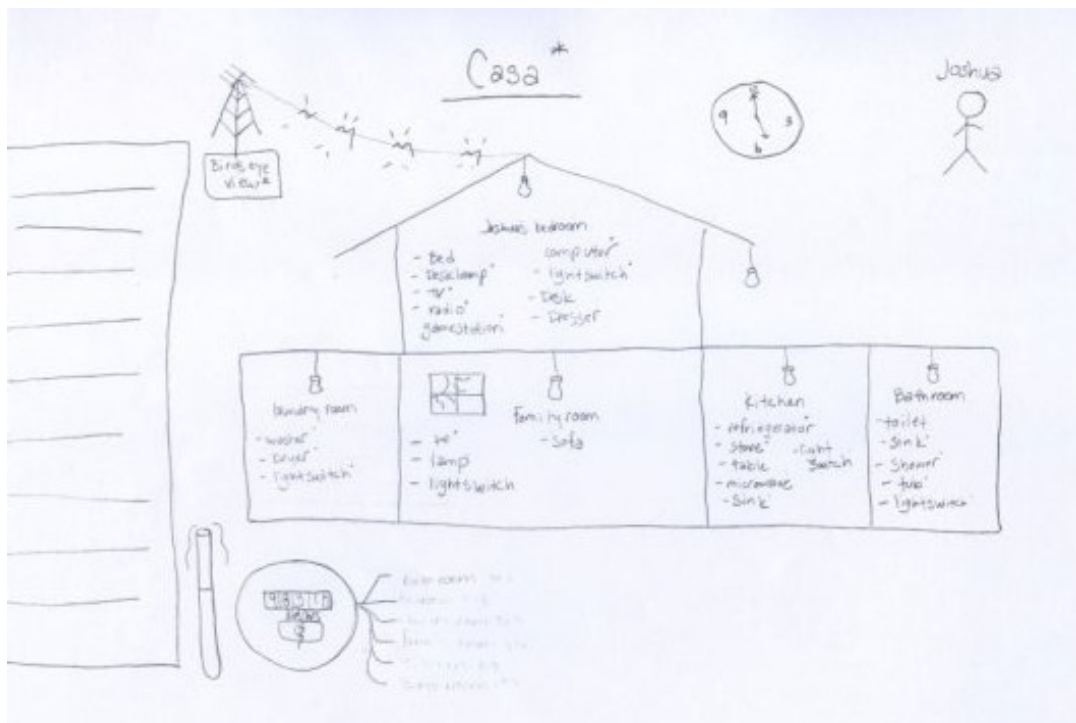 Casa*
Joshua
Birdseye
view*
9
3
6
Joshua's bedroom
- Bed
- Desklamp*
- TV*
- radio*
gamestation*
computer*
- lightswitch*
- Desk
- Dresser
laundry room
- washer*
- Dryer*
- lightswitch*
Family room
- Sofa
- tv*
- lamp
- lightswitch
Kitchen
- refrigerator*
- stove*
- table
- microwave
- Sink
- light
switch
Bathroom
- toilet
- Sink*
- Shower*
- tub*
- lightswitch*